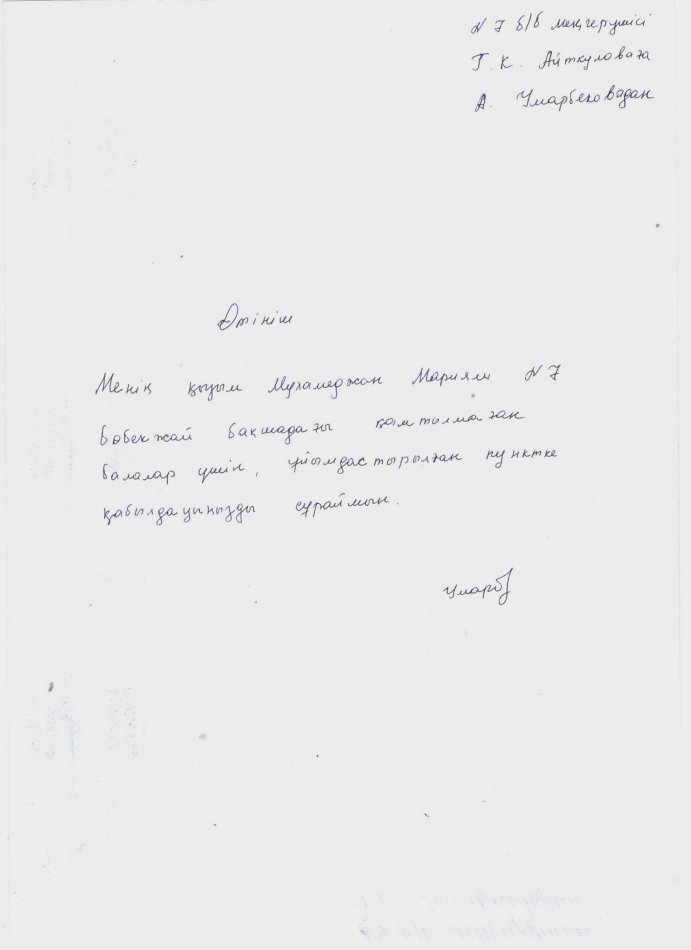 N 7 б/б меңгерушісі
Г. К. Айткуловаға
А. Умарбековадан
Өтініш
Менің қызым Мұхамеджан Мариям N 7
бөбекжай бақшадағы қамтылмаған
балалар үшін, ұйымдастырылған пунктке
қабылдауыңызды сұраймын.
Умарб